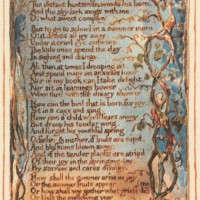 The distant huntsman winds his horn
And the sky-lark sings with me
O what sweet company
But to go to school in a summer morn
O it drives all joy away
Under a cruel eye outworn
The little ones spend the day
In sighing and dismay
Ah then at times I drooping sit
And spend many an anxious hour
Nor in my book can I take delight
Nor sit in learnings bower
Worn thro with the dreary shower
How can the bird that is born for joy
Sit in a cage and sing
How can a child when fears annoy
But droop his tender wing
And forget his youthful spring
O father & mother if buds are nip'd
And blossoms blown away
And if the tender plants are strip'd
Of their joy in the springing day
By sorrow and cares dismay
How shall the summer arise in joy
Or the summer fruits appear
Or how shall we gather what griefs
Or bless the mellowing year